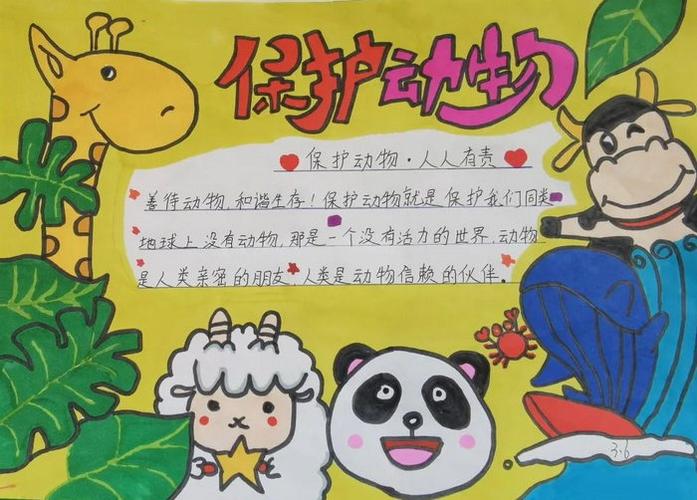 保护动物
保护动物·人人有责
善待动物,和谐生存!保护动物就是保护我们同类
地球上没有动物,那是一个没有活力的世界,动物
是人类亲密的朋友,人类是动物信赖的伙伴。
3.6